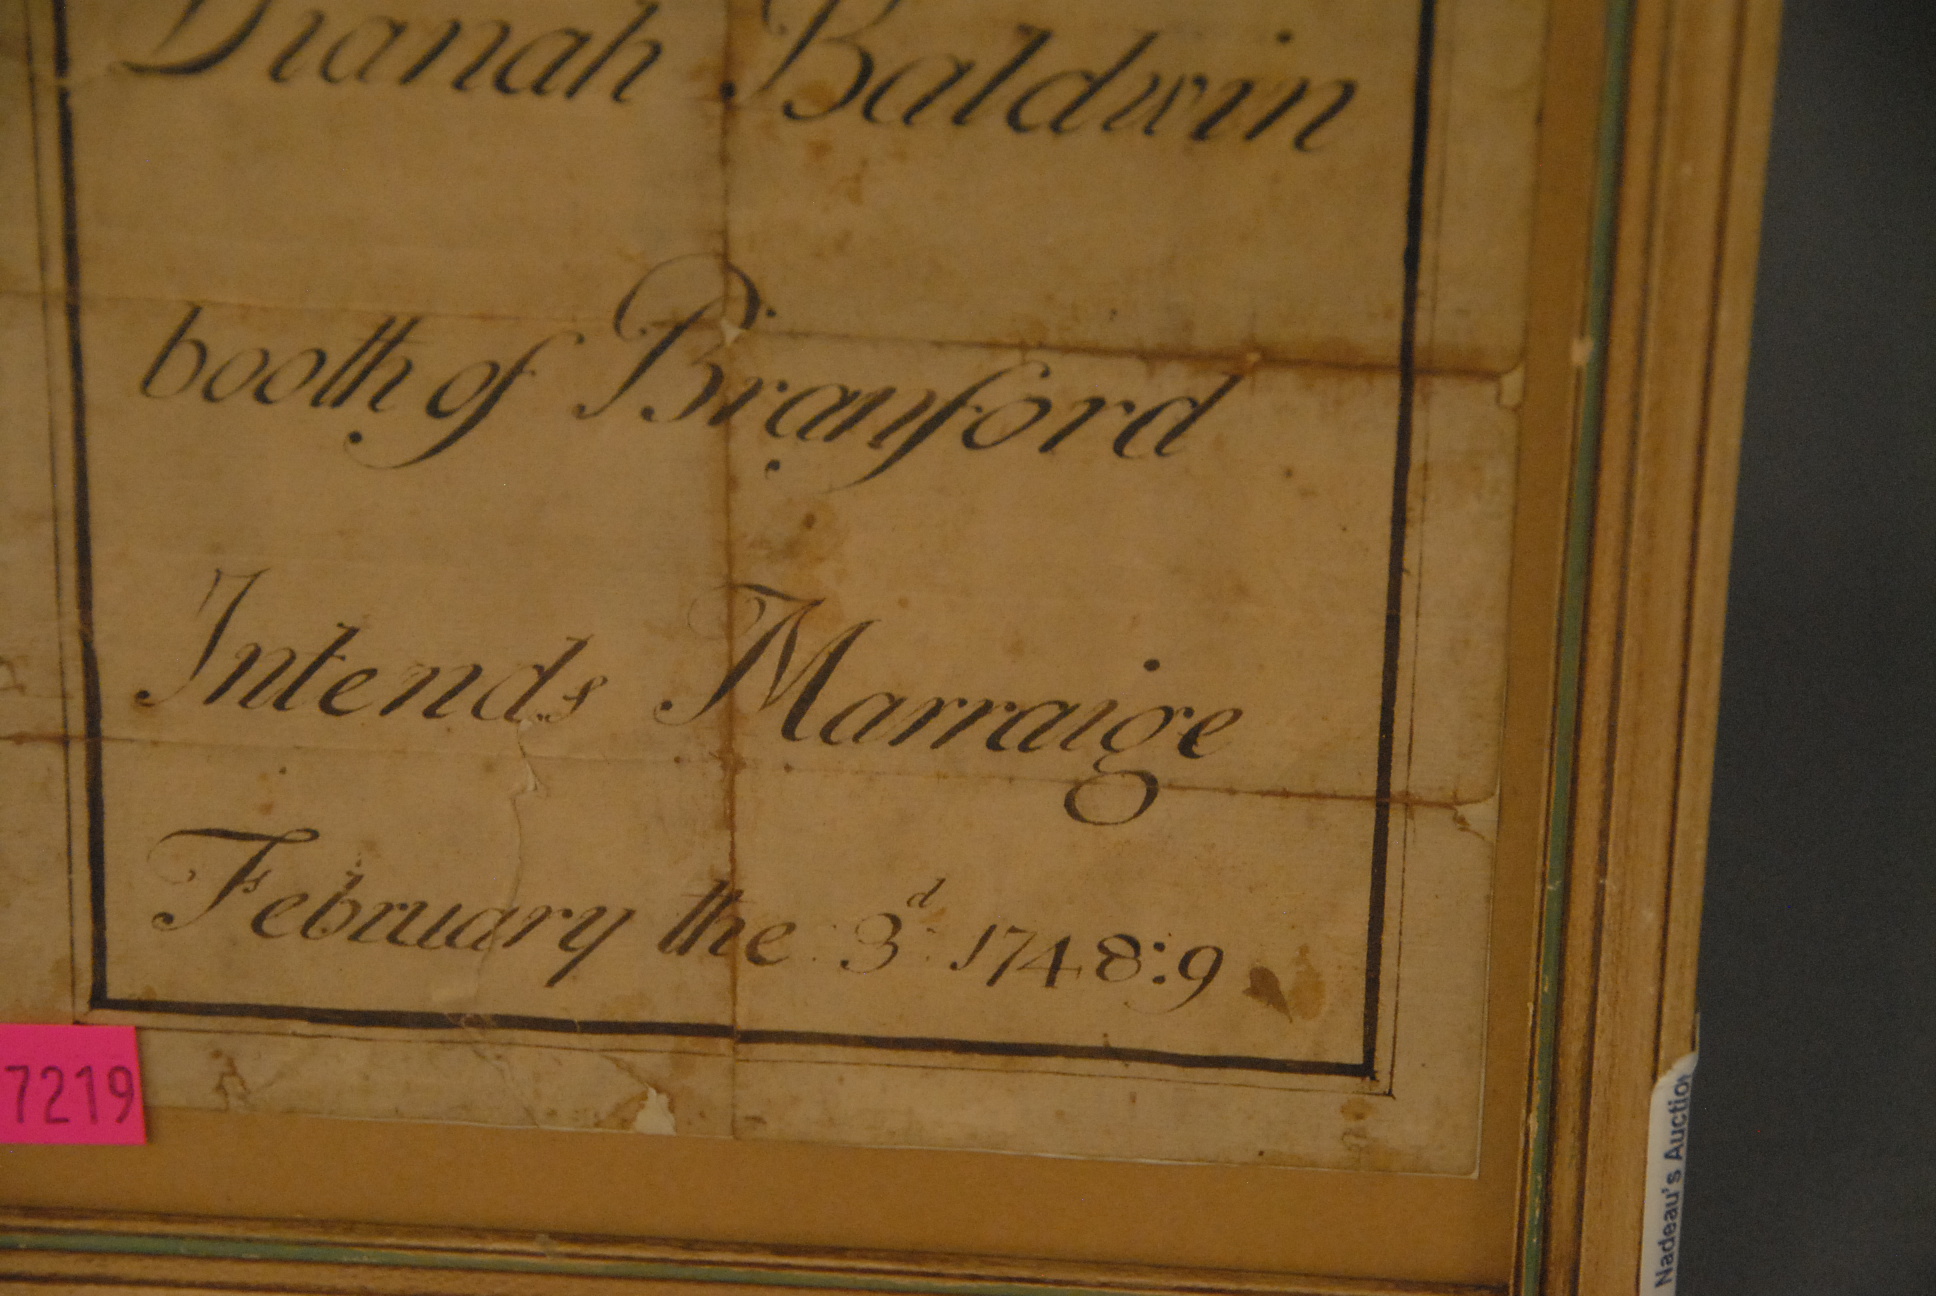 Dianah Baldwin
booth of Branford
Intends Marraige
February the 3d 1748:9
7219
Nadeau's Auction